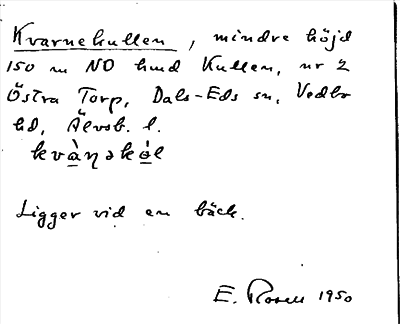 Kvarnekullen, mindre höjd
150 m NO hmd Kullen, nr 2
Östra Torp, Dals-Eds sn, Vedbo
hd, Älvsb. l.
kvàṇəkól
Ligger vid en bäck.
E. Rosell 1950